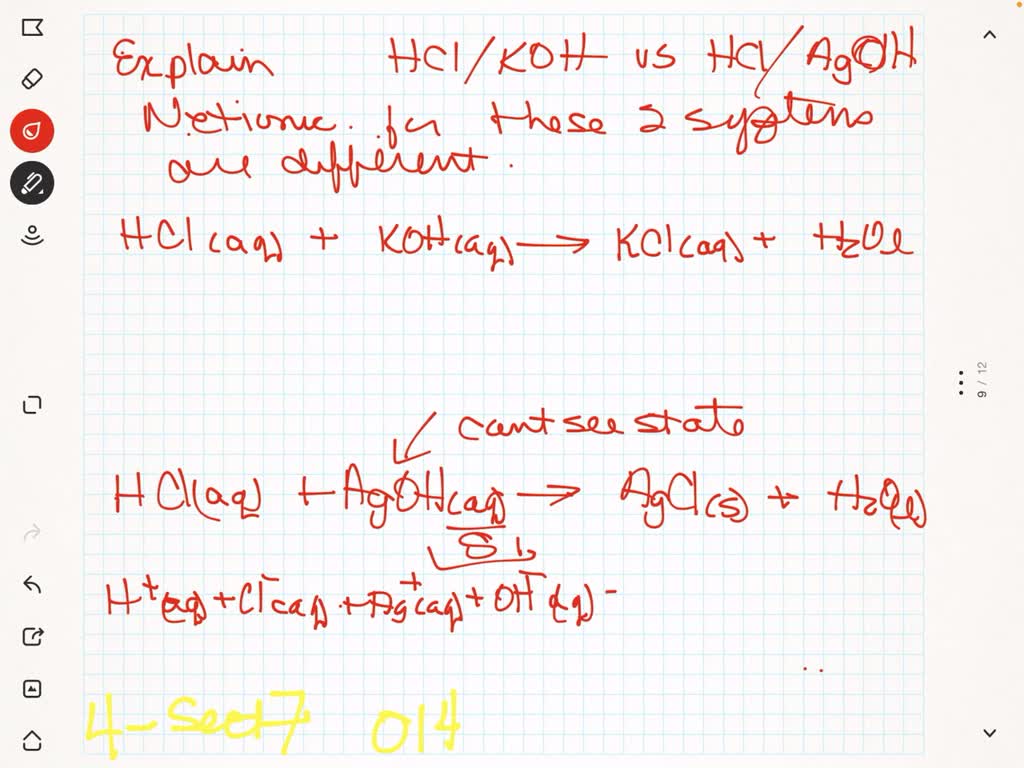 Explain HCl/KOH vs HCl/AgOH
Netionic for these 2 systems
are different.
HCl(aq) + KOH(aq) → KCl(aq) + H2Ol
9 / 12
cant see state
HCl(aq) + AgOH(aq) → AgCl(s) + H2O(l)
H+(aq) + Cl-(aq) + Ag+(aq) + OH-(aq) -
4-Sect7 014